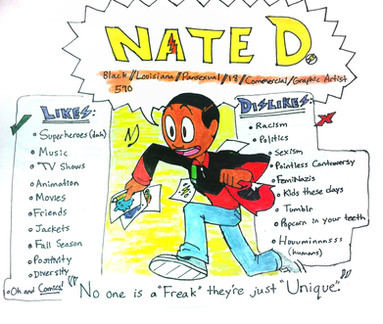 NATE D.
Black//Louisiana//Pansexual//19//Commercial/Graphic Artist
590
LIKES:
• Superheroes (duh)
• Music
• TV Shows
• Animation
• Movies
• Friends
• Jackets
• Fall Season
• Positivity
• Diversity
• Oh and Comics!
DISLIKES:
• Racism
• Politics
• Sexism
• Pointless Controversy
• FemiNazis
• Kids these days
• Tumblr
• Popcorn in your teeth
• Houuminnnsss
(humans)
"No one is a "Freak" they're just "Unique"."